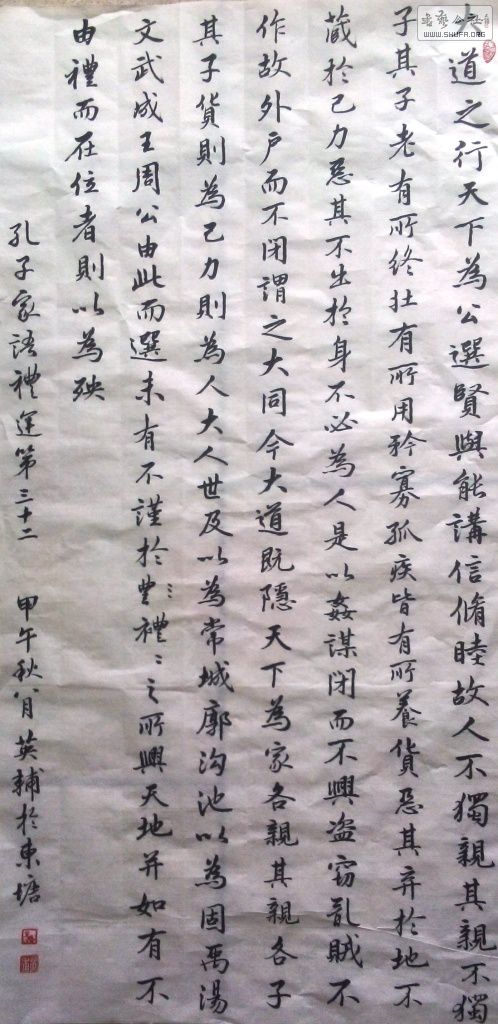 大道之行天下為公選賢與能講信脩睦故人不獨親其親不獨
子其子老有所終壯有所用矜寡孤疾皆有所養貨惡其弃於地不
藏於己力惡其不出於身不必為人是以姦謀閉而不興盗竊亂賊不
作故外戶而不閉謂之大同今大道既隱天下為家各親其親各子
其子貨則為己力則為人大人世及以為常城廓沟池以為固禹湯
文武成王周公由此而選未有不謹於豊禮〻之所興天地并如有不
由禮而在位者則以為殃
孔子家語禮運第三十二 甲午秋八月英輔於東塘
書藝公社
WWW.SHUFA.ORG